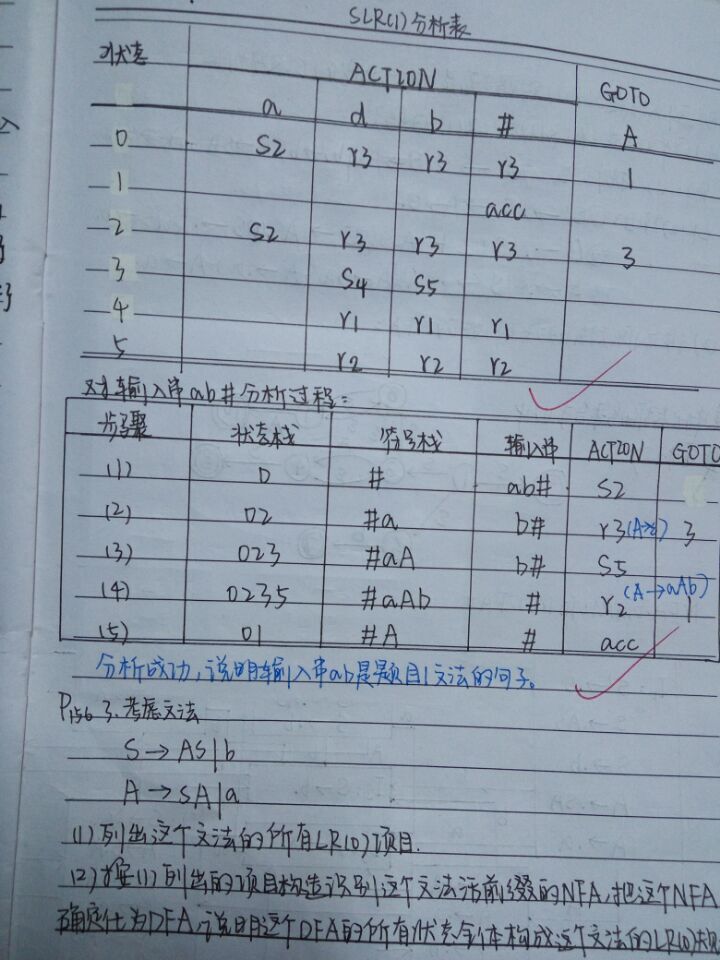 SLR(1)分析表
状态 ACTION GOTO
a d b # A
0 S2 r3 r3 r3 1
1 acc
2 S2 r3 r3 r3 3
3 S4 S5
4 r1 r1 r1
5 r2 r2 r2
对输入串ab#分析过程:
步骤 状态栈 符号栈 输入串 ACTION GOTO
(1) 0 # ab# S2
(2) 02 #a b# r3(A→ε) 3
(3) 023 #aA b# S5
(4) 0235 #aAb # r2(A→aAb) 1
(5) 01 #A # acc
分析成功,说明输入串ab是题目1文法的句子。
P156 3.考虑文法
S→AS|b
A→SA|a
(1)列出这个文法的所有LR(0)项目.
(2)按(1)列出的项目构造识别这个文法活前缀的NFA,把这个NFA
确定化为DFA,说明这个DFA的所有状态全体构成这个文法的LR(0)规